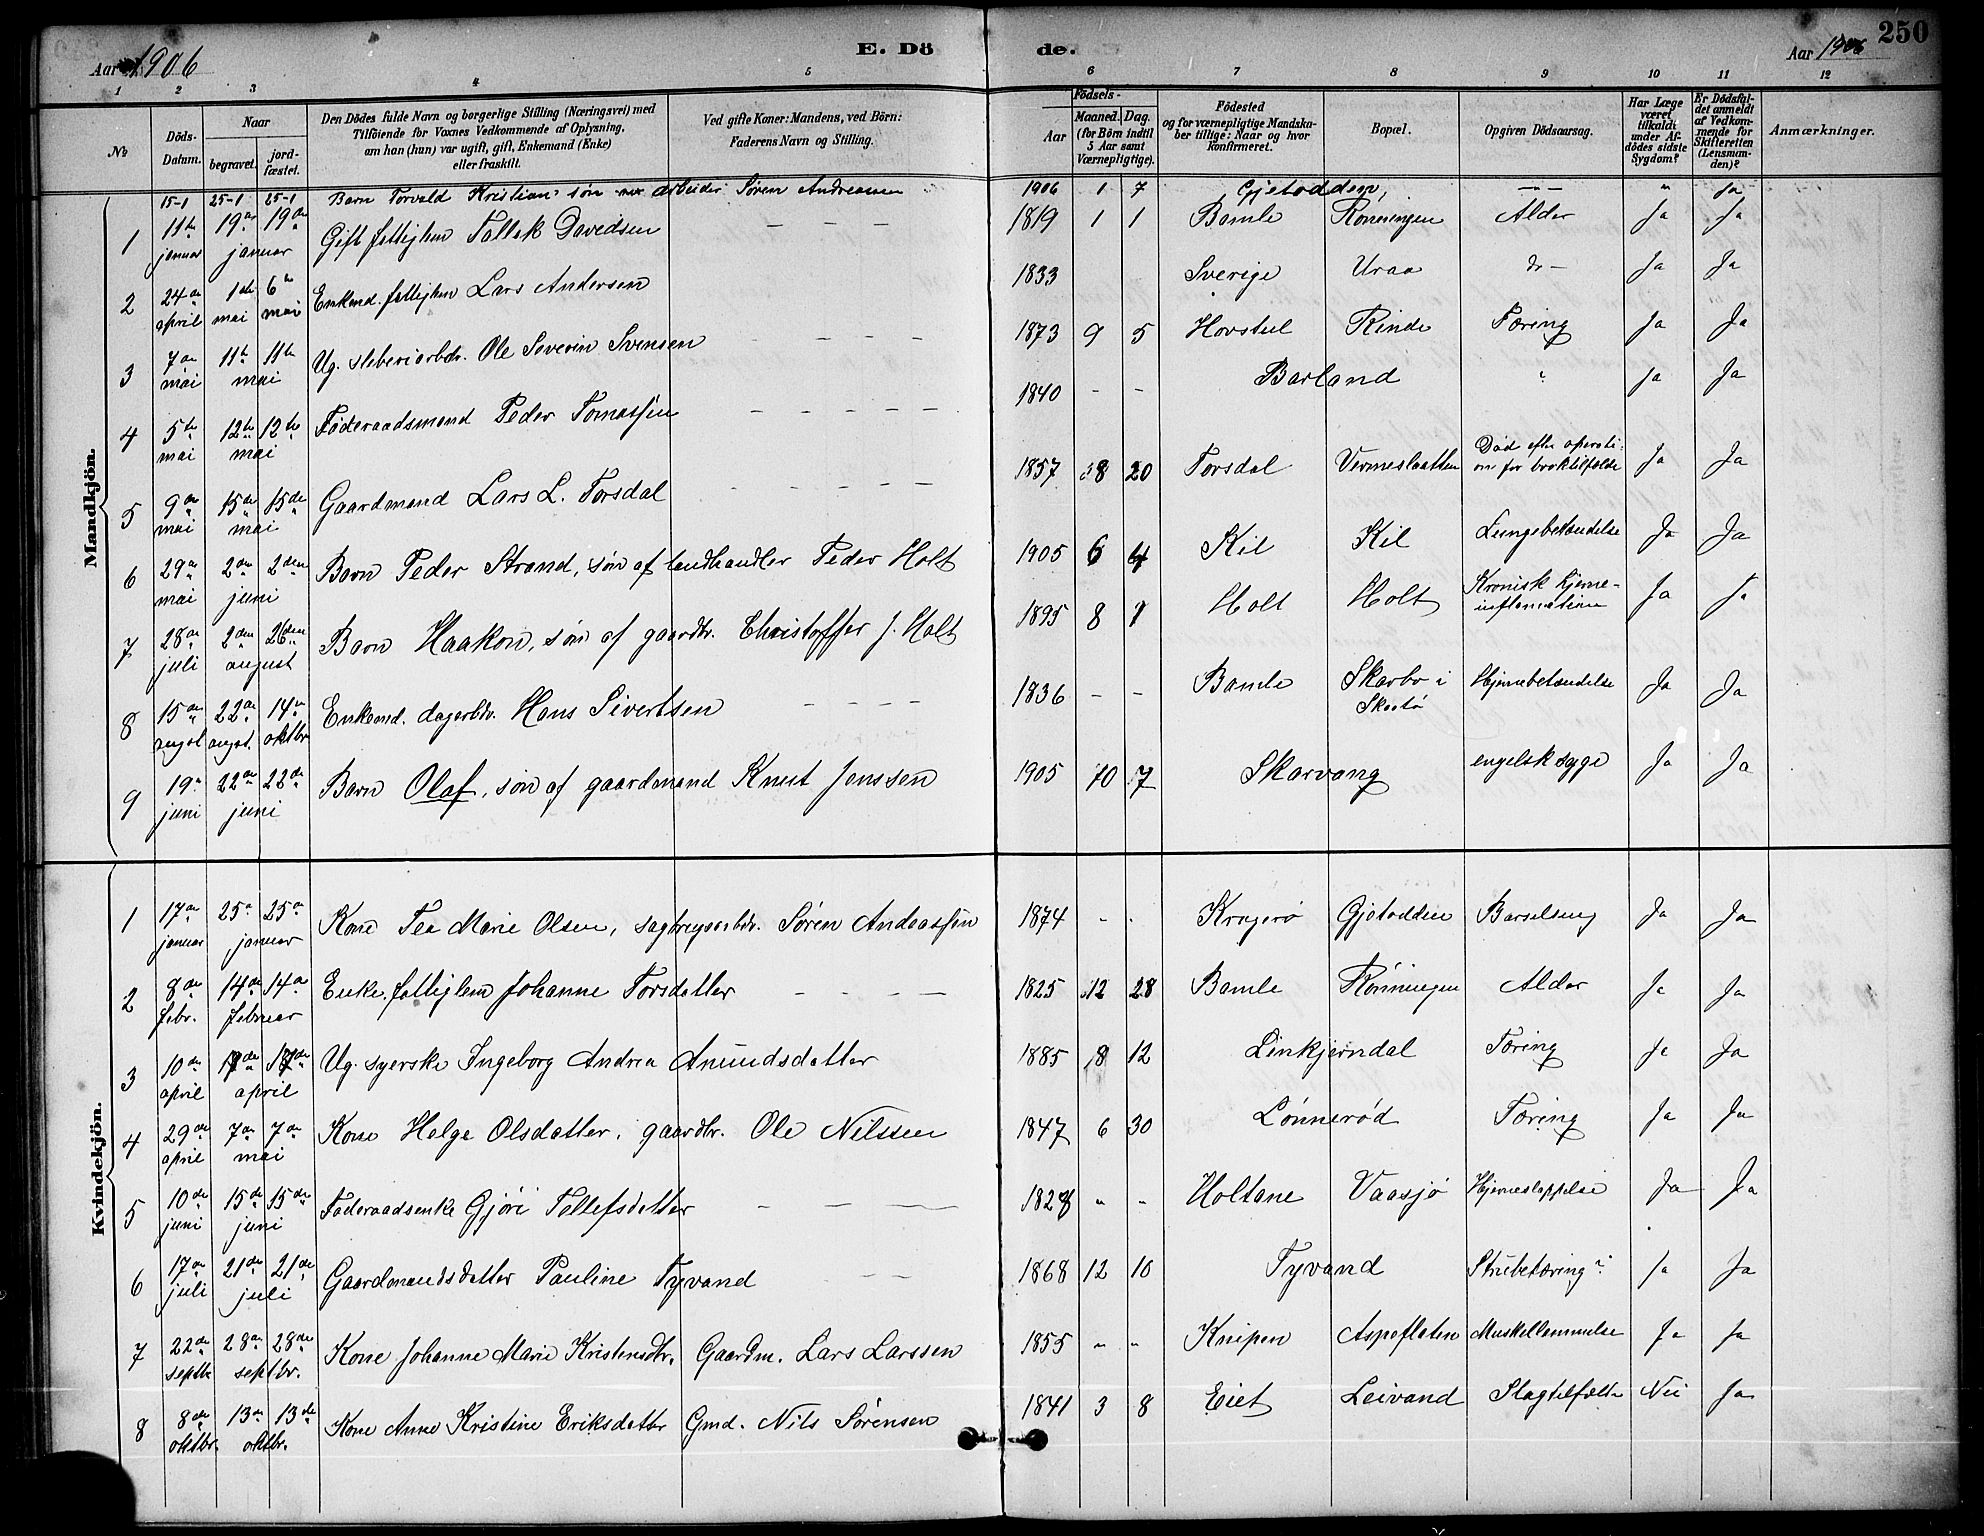 250
Aar 1906
E. Døde.
Aar 1906
1 2 3 4 5 6 7 8 9 10 11 12
№
Döds-Datum.
Naar
begravet.
jord-fæstet.
Den Dödes fulde Navn og borgerlige Stilling (Næringsvei) med
Tilföiende for Voxnes Vedkommende af Oplysning,
om han (hun) var ugift, gift, Enkemand (Enke)
eller fraskilt.
Ved gifte Koner: Mandens, ved Börn:
Faderens Navn og Stilling.
Födsels-
Aar
Maaned. Dag.
(for Börn indtil
5 Aar samt
Værnepligtige).
Födested
og for værnepligtige Mandska-
ber tillige: Naar og hvor
konfirmeret.
Bopæl.
Opgiven Dödsaarsag.
Har Læge
været
tilkaldt
under Af-
dödes sidste
Sygdom?
Er Dödsfal-
det anmeldt
af Vedkom-
mende for
Skifteretten
(Lensman-
den)?
Anmærkninger.
Mandkjön.
15-1 25-1 25-1 Barn Torvald Kristian, søn arbeider Søren Andreassen 1906 1 7 Gjetodden, — — " ja
1 11te januar 19de 19de januar Gift fattiglem Tallak Davidsen — — — 1819 1 1 Bamle Rønningen Alder Ja Ja
2 24de april 1ste mai 6te mai Enkemd. fattiglem Lars Andersen 1833 Sverige Uraa do — Ja Ja
3 7de mai 11te 11te mai Ug. sliberiarbdr. Ole Severin Svensen — — — — 1873 9 5 Hovstul Rinde Tæring Ja Ja
4 5te mai 12te 12te mai Føderaadsmand Peder Tomassen — — — — — 1840 — — Barland " Ja Ja
5 9de mai 15de 15de mai Gaardmand Lars L. Torsdal — — — — — 1857 8 20 Torsdal Vermeslaatten Død efter operati-
on for broktilfælde Ja Ja
6 29de mai 2den 2den juni Barn Peder Strand, søn af landhandler Peder Holt 1905 6 4 Kil Kil Lungebetændelse Ja Ja
7 28de juli 2den 26den august Barn Haakon, søn af gaardbr. Christoffer J. Holt 1895 8 9 Holt Holt Kronisk hjerne-
inflamation Ja Ja
8 15de augst 22de augst. 14de oktbr Enkemd. dagarbdr. Hans Sivertsen — — — — 1836 — — Bamle Skarbo i
Skaatø Hjernebetændelse Ja Ja
9 19de juni 22de 22de juni Barn Olaf, søn af gaardmand Knut Jenssen 1905 10 7 Skarvang engelsk syge Ja Ja
Kvindekjön.
1 17de januar 25de 25de januar Kone Tea Marie Olsen, sagbrugsarbdr. Søren Andreassen 1874 " " Kragerø Gjetodden Barselseng Ja Ja
2 8de febr. 14de 14de februar Enke, fattiglem Johanne Torsdatter — — — — 1825 12 28 Bamle Rønningen Alder Ja Ja
3 10de april 17de 17de april Ug. syerske Ingeborg Andrea Amundsdatter 1885 8 12 Linkjerndal Tæring Ja Ja
4 29de april 7de 7de mai Kone Helge Olsdatter, gaardbr. Ole Nilssen 1847 6 30 Lønnerød Tæring Ja Ja
5 10de juni 15de 15de juni Føderaadsenke Gjøri Tellefsdatter — — — 1828 " " Holtane Vaasjø Hjerneslappelse Ja Ja
6 17de juli 21de 21de juli Gaardmandsdatter Pauline Tyvand — — 1868 12 10 Tyvand Strubetæring Ja Ja
7 22de septbr 28de 28de septbr. Kone Johanne Marie Kristensdtr. Gaardm. Lars Larssen 1855 " " Knipen Aspeflaten Muskellammelse Ja Ja
8 8de oktbr. 13de 13de oktbr. Kone Anne Kristine Eriksdatter Gmd. Nils Sørensen 1841 3 8 Eiet Leivand Slagtilfælde Nei Ja